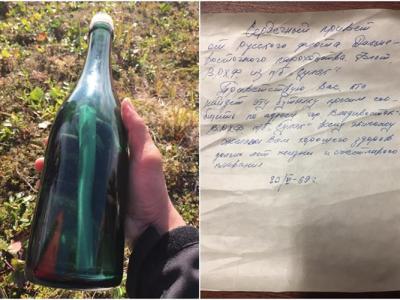 Сердечный привет
от русского флота Дальне-
восточного пароходства Флот
ВРХФ из п/б "Сулак"
Приветствую Вас, кто
найдет эту бутылку просим соо-
бщить по адресу гор Владивосток-
ВРХФ п/б "Сулак" всему экипажу
желаем Вам хорошего здоровья
долгих лет жизни и счастливого
плавания
69г.